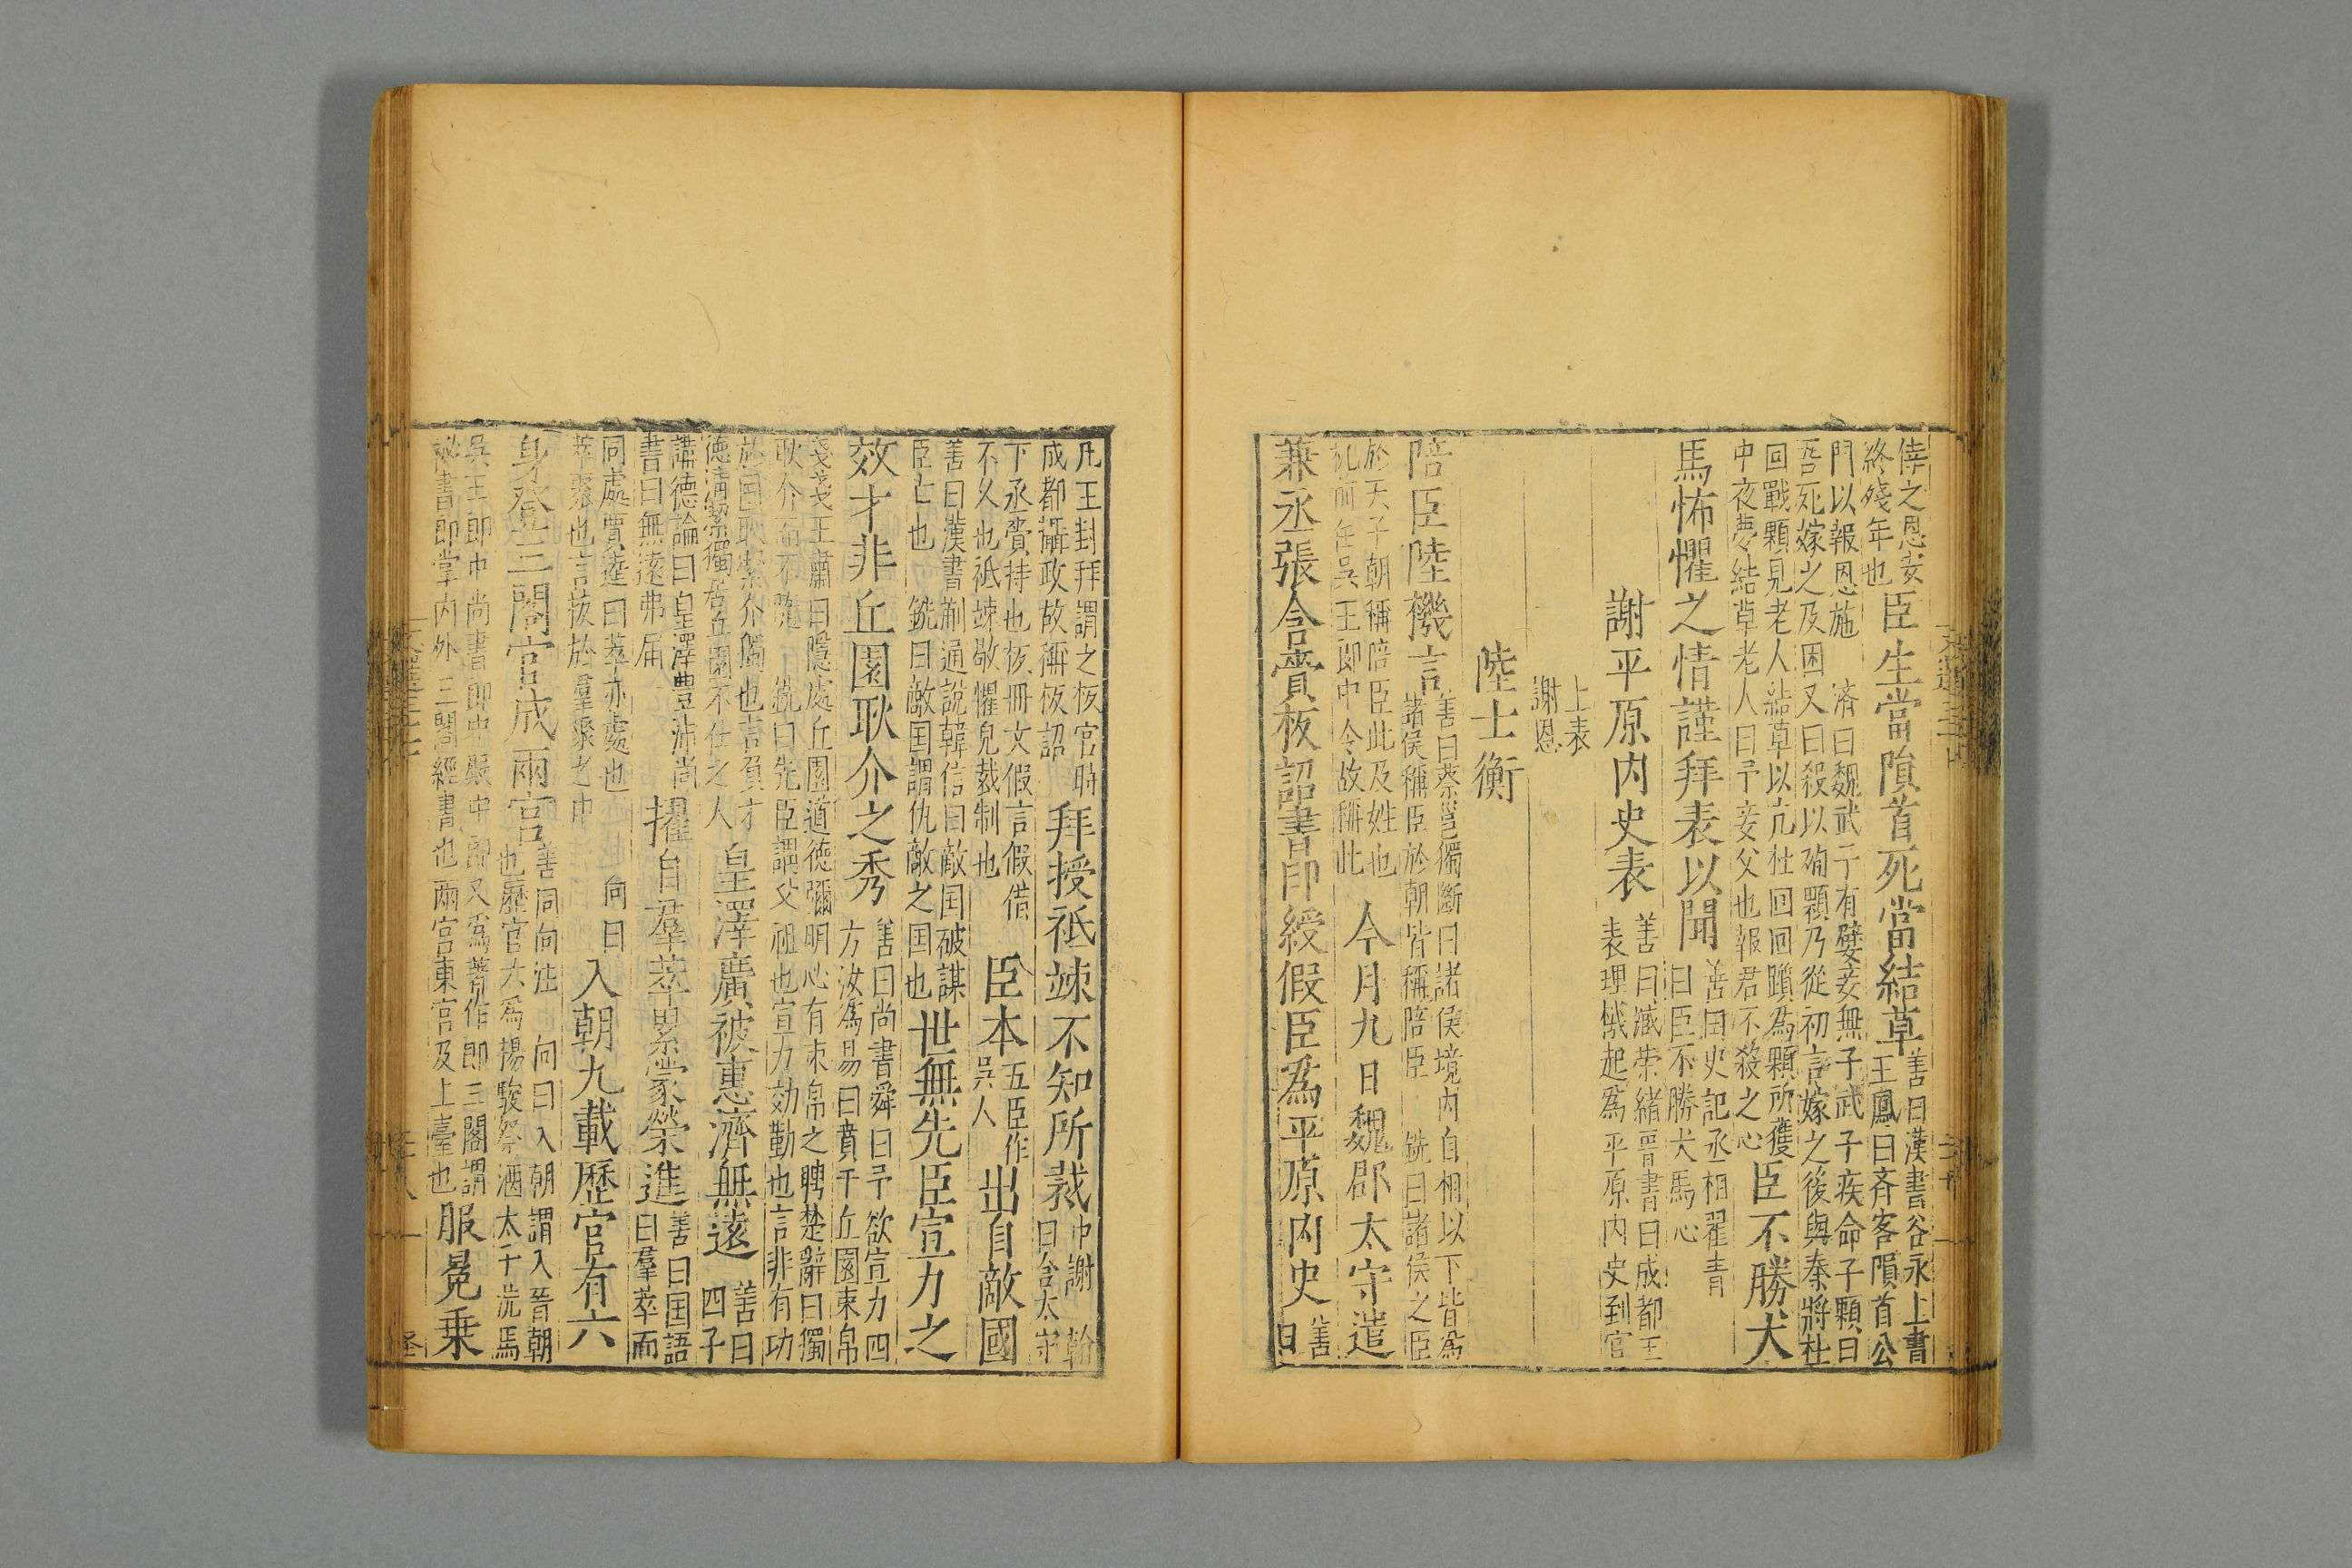 倖之恩妄
終殘年也
臣生當隕首死當結草
善曰漢書谷永上書
王鳳曰齊客隕首公
門以報恩施 濟曰魏武子有嬖妾無子武子疾命子顆曰
吾死嫁之及困又曰殺以殉顆乃從初言嫁之後與秦將杜
回戰顆見老人結草以亢杜回回躓為顆所獲
中夜夢結草老人曰予妾父也報君不殺之心
臣不勝犬
馬怖懼之情謹拜表以聞
善曰史記丞相翟青
曰臣不勝犬馬心
謝平原内史表
善曰臧榮緒晉書曰成都王
表理機起為平原内史到官
上表
謝恩
陸士衡
陪臣陸機言
善曰蔡邕獨斷曰諸侯境内自相以下皆為
諸侯稱臣於朝皆稱陪臣 銑曰諸侯之臣
於天子朝稱陪臣此及姓也
机前任吳王郎中令故稱此
今月九日魏郡太守遣
兼丞張含賫板詔書印綬假臣為平原内史
善
曰
凡王封拜謂之板官時
成都攝政故稱板詔
拜授祇竦不知所裁
中謝 翰
曰含太守
下丞賫持也板冊文假言假借
不久也祇竦敬懼皃裁制也
臣本
五臣作
吳人
出自敵國
善曰漢書蒯通說韓信曰敵国破謀
臣亡也 銑曰敵国謂仇敵之国也
世無先臣宣力之
效才非丘園耿介之秀
善曰尚書舜曰予欲宣力四
方汝為易曰賁于丘園束帛
戔戔王肅曰隱處丘園道徳彌明必有束帛之聘楚辭曰獨
耿介而不隨 銑曰先臣謂父祖也宣力効勤也言非有功
於国耿介獨也言負才
徳清潔獨居丘園不仕之人
皇澤廣被惠濟無遠
善曰
四子
講德論曰皇澤豊沛尚
書曰無遠弗届
擢自羣萃累蒙榮進
善曰国語
曰羣萃而
同處賈逵曰萃亦處也 向曰
萃聚也言拔於羣聚之中
入朝九載歷官有六
身登三閣宮成兩宮
善同向注 向曰入朝謂入晉朝
也歷官六為楊駿祭酒太子洗馬
吳王郎中尚書郎中殿中郎又為著作郎三閣謂
祕書郎掌内外三閣經書也兩宮東宮及上臺也
服冕乗